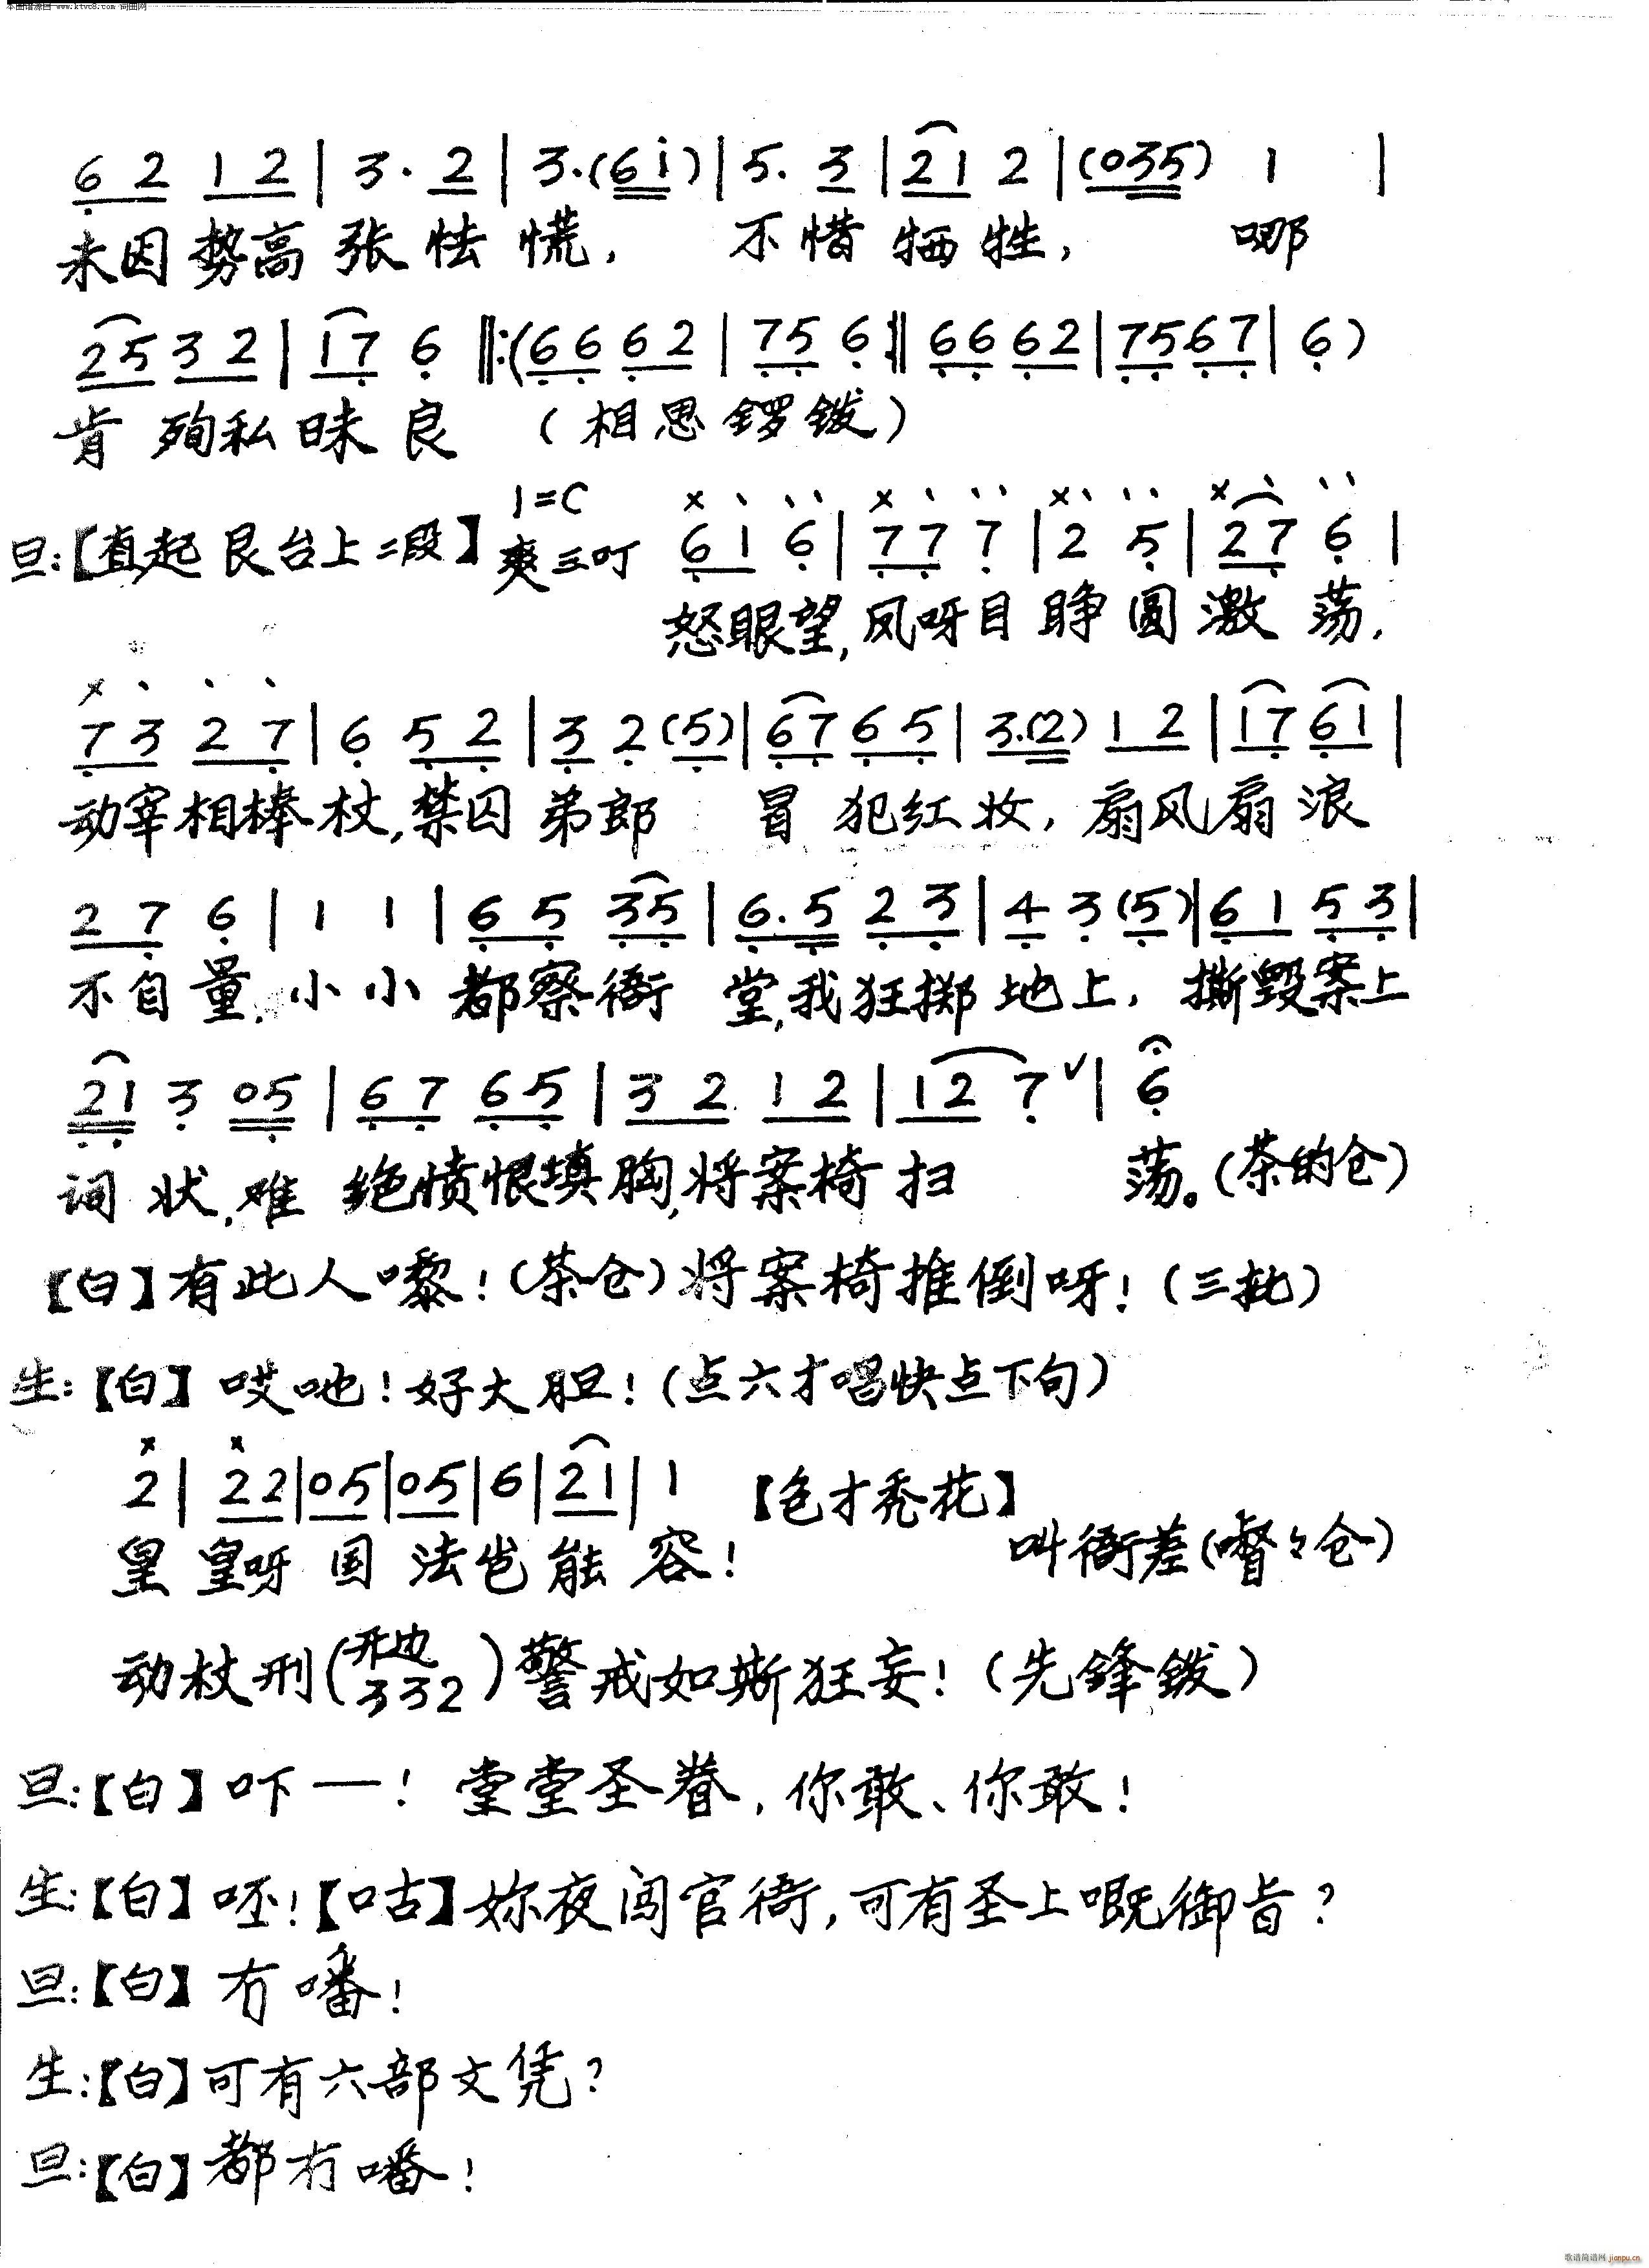 本曲谱源自 www.ktvc8.com 词曲网
6 2 1 2 | 3 · 2 | 3·(6 i) | 5. 3 | 2 1 2 | (035) 1 |
未因势高张怯慌， 不惜牺牲， 哪
2 5 3 2 | 1 7 6 ‖:(6 6 6 2 | 7 5 6 :‖ 6 6 6 2 | 7 5 6 7 | 6 )
肯殉私昧良 （相思锣钹）
1=C
旦:【直起艮台上二段】爽三叮 6 1 6 | 7 7 7 | 2 5 | 2 7 6 |
怒眼望,凤呀目睁圆激荡,
7 3 2 7 | 6 5 2 | 3 2 (5) | 6 7 6 5 | 3.(2) 1 2 | 1 7 6 1 |
动宰相棒杖,禁囚弟郎 冒犯红妆,扇风扇浪
2 7 6 | 1 1 | 6 5 3 5 | 6. 5 2 3 | 4 3 (5) | 6 1 5 3 |
不自量,小小都察衙堂,我狂掷地上,撕毁案上
2 1 3 0 5 | 6 7 6 5 | 3 2 1 2 | 1 2 7 ∨ | 6
词状,难绝愤恨填胸,将案椅扫 荡。(茶的仓)
【白】有此人嚟!(茶仓)将案椅推倒呀!(三批)
生:【白】哎吔!好大胆!(点六才唱快点下句)
2 | 2 2 | 0 5 | 0 5 | 6 | 2 1 | 1 【色才秃花】
皇皇呀国法岂能容! 叫衙差(嘟々仓)
动杖刑(开边 3 3 2)警戒如斯狂妄!(先锋钹)
旦:【白】吓一!堂堂圣眷,你敢、你敢!
生:【白】呸!【咕】妳夜闯官衙,可有圣上嘅御旨?
旦:【白】冇噃!
生:【白】可有六部文凭?
旦:【白】都冇噃!
歌谱简谱网 jianpu.cn